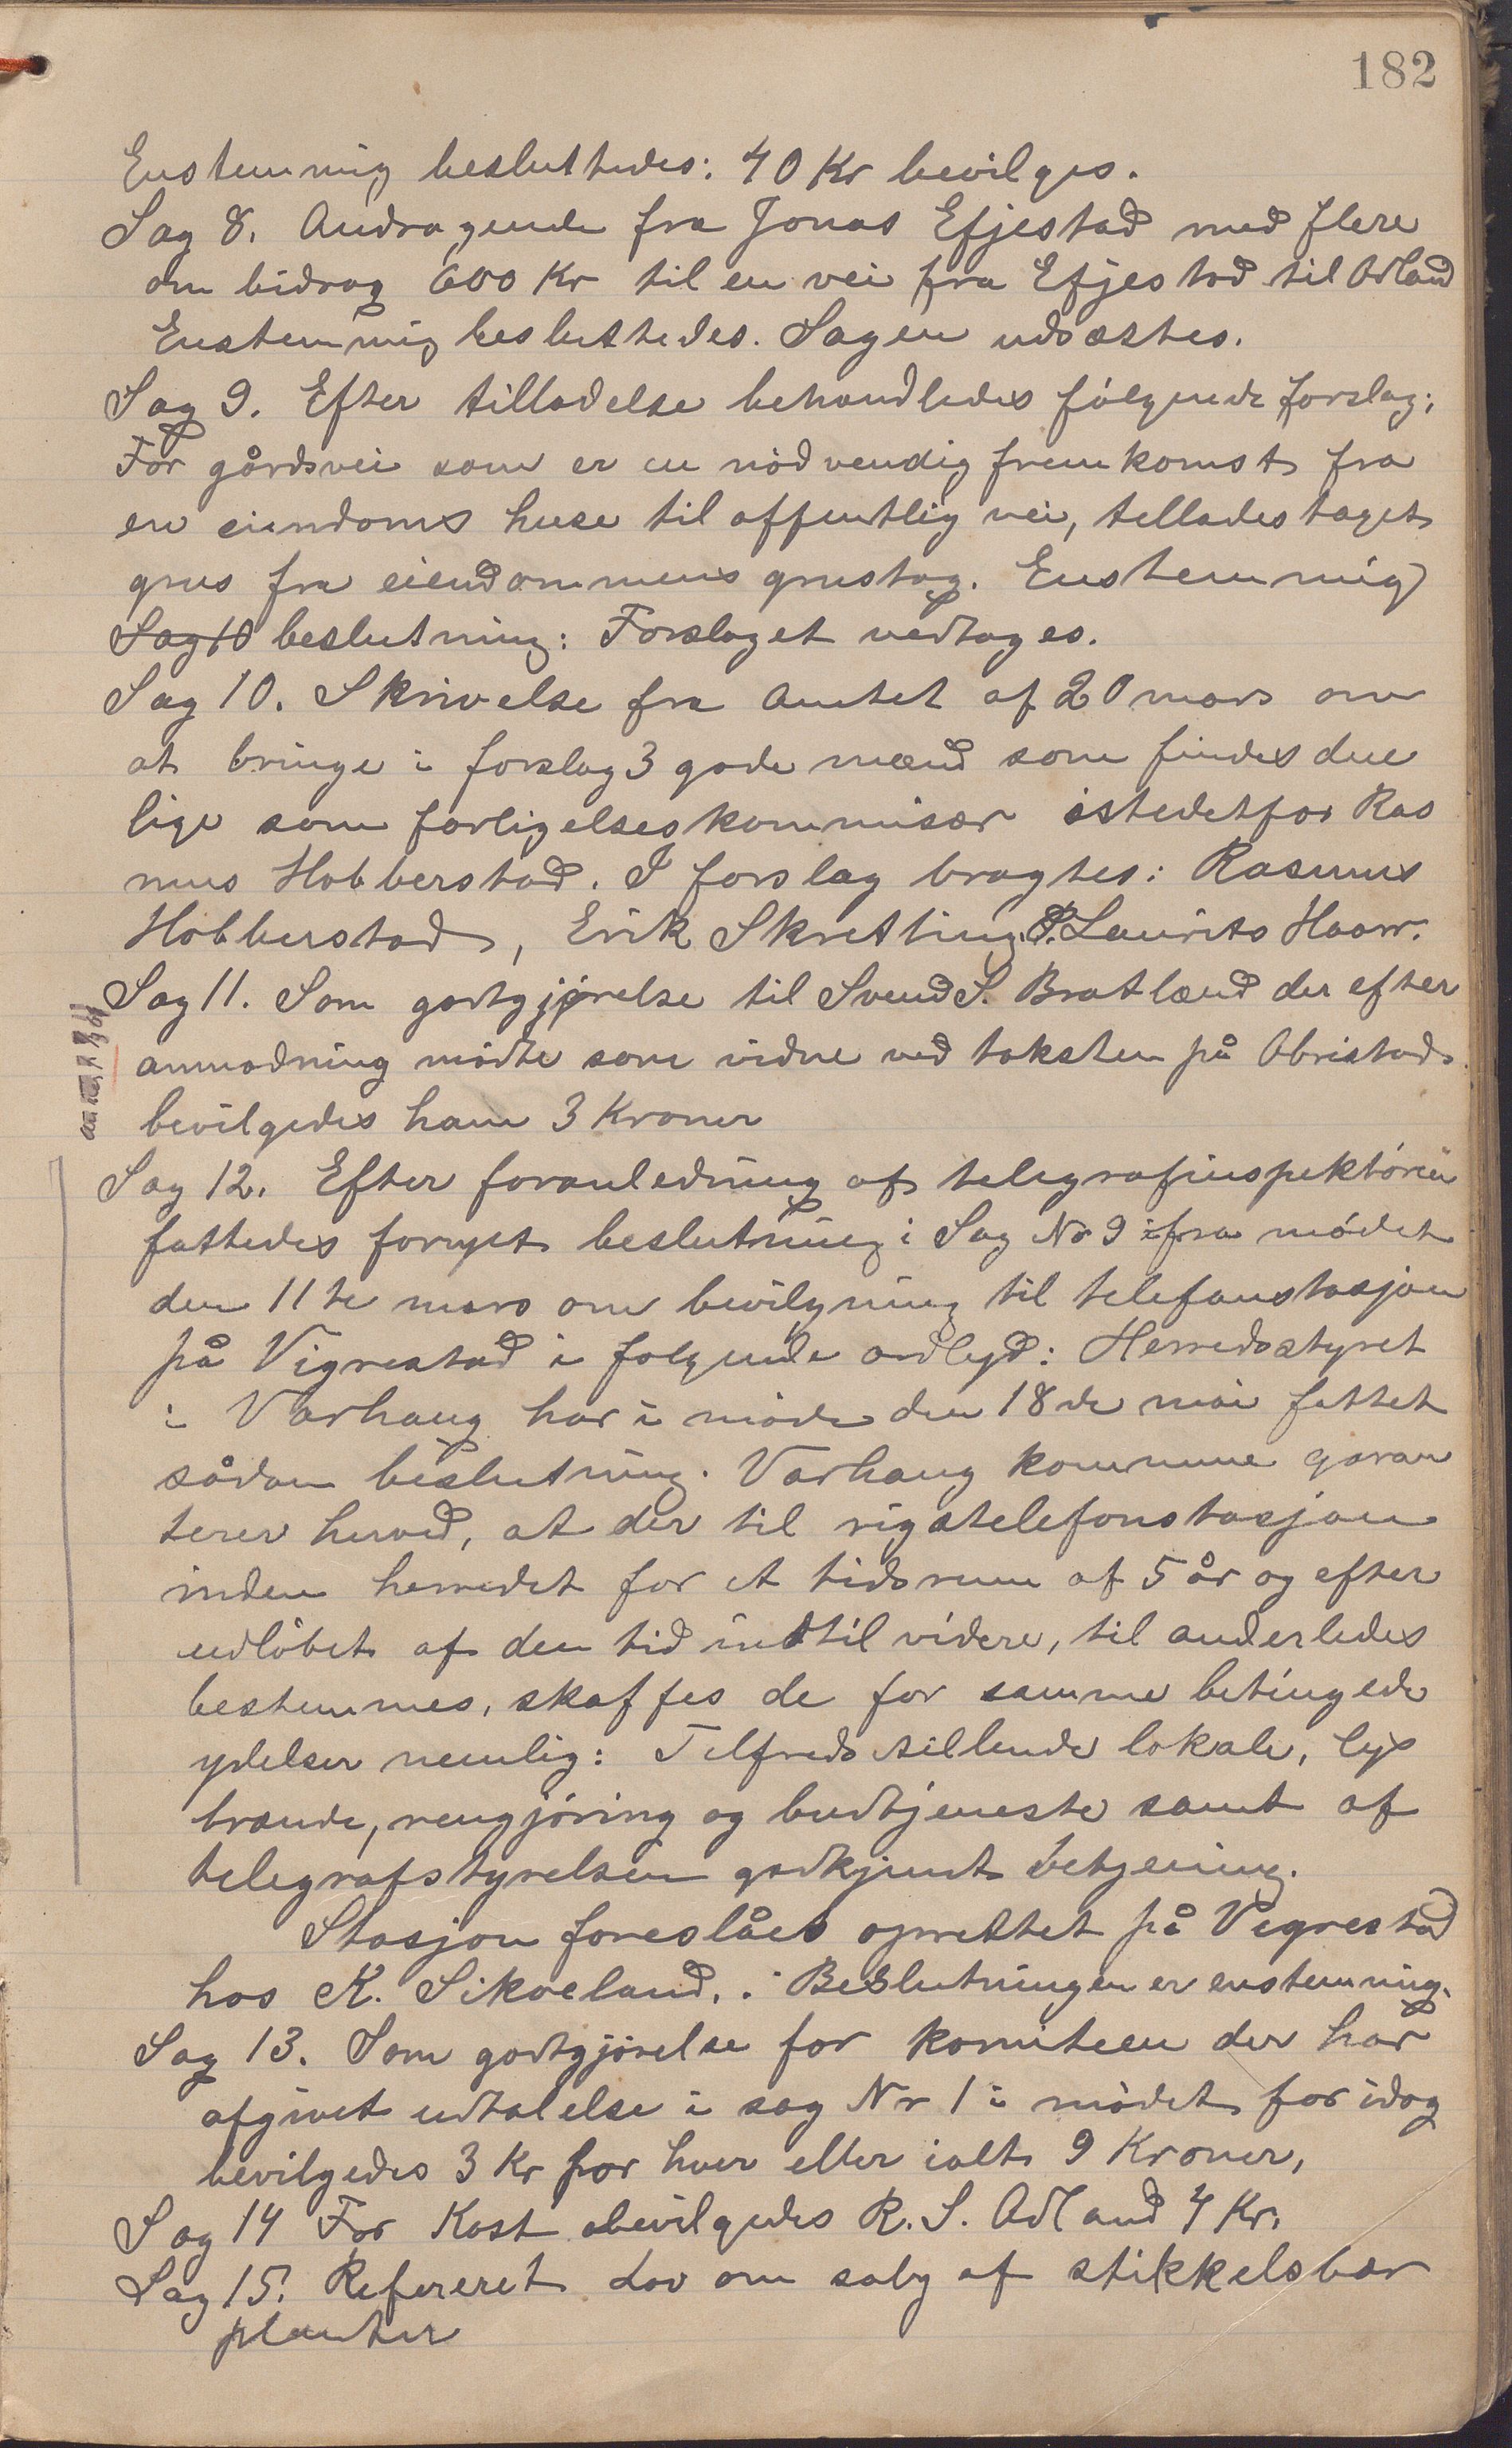 182
Enstemmig besluttedes: 40 Kr bevilges.
Sag 8. Andragende fra Jonas Efjestad med flere
om bidrag 600 Kr til en vei fra Efjestad til Adland
Enstemmig besluttedes. Sagen udsættes.
Sag 9. Efter tilladelse behandledes følgende forslag;
For gårdsvei som er en nødvendig fremkomst fra
en eiendoms huse til offentlig vei, tillades taget
grus fra eiendommens grustag. Enstemmig
Sag 10 beslutning: Forslaget vedtages.
Sag 10. Skrivelse fra Amtet af 20 mars om
at bringe i forslag 3 gode mænd som findes due
lige som forligelseskommisær istedetfor Ras
mus Hobberstad. I forslag bragtes: Rasmus
Hobberstad, Erik Skretting, Laurits Haarr.
Sag 11. Som godtgjørelse til Svend S. Bratland der efter
anmodning mødte som vidne ved taksten på Obrestad
bevilgedes ham 3 Kroner
Sag 12. Efter foranledning af telegrafinspektøren
fattedes fornyet beslutning i Sag No 9 ifra mødet
den 11te mars om bevilgning til telefonstasjon
på Vigrestad i følgende ordlyd: Herredsstyret
i Varhaug har i møde den 18de mai fattet
sådan beslutning. Varhaug kommune garan
terer herved, at der til rigstelefonstasjon
inden herredet for et tidsrum af 5 år og efter
udløbet af den tid indtil videre, til anderledes
bestemmes, skaffes de for samme betingede
ydelser nemlig: Tilfredstillende lokale, lys
brænde, rengjøring og budtjeneste samt af
telegrafstyrelsen godkjendt betjening.
Stasjon foreslåes oprettet på Vigrestad
hos K. Sikveland. Beslutningen er enstemmig.
Sag 13. Som godtgjørelse for komiteen der har
afgivet udtalelse i sag Nr 1 i mødet for idag
bevilgedes 3 Kr for hver eller ialt 9 Kroner,
Sag 14 For Kost bevilgedes R. S. Adland 4 Kr.
Sag 15. Refereret Lov om salg af stikkelsbær
planter